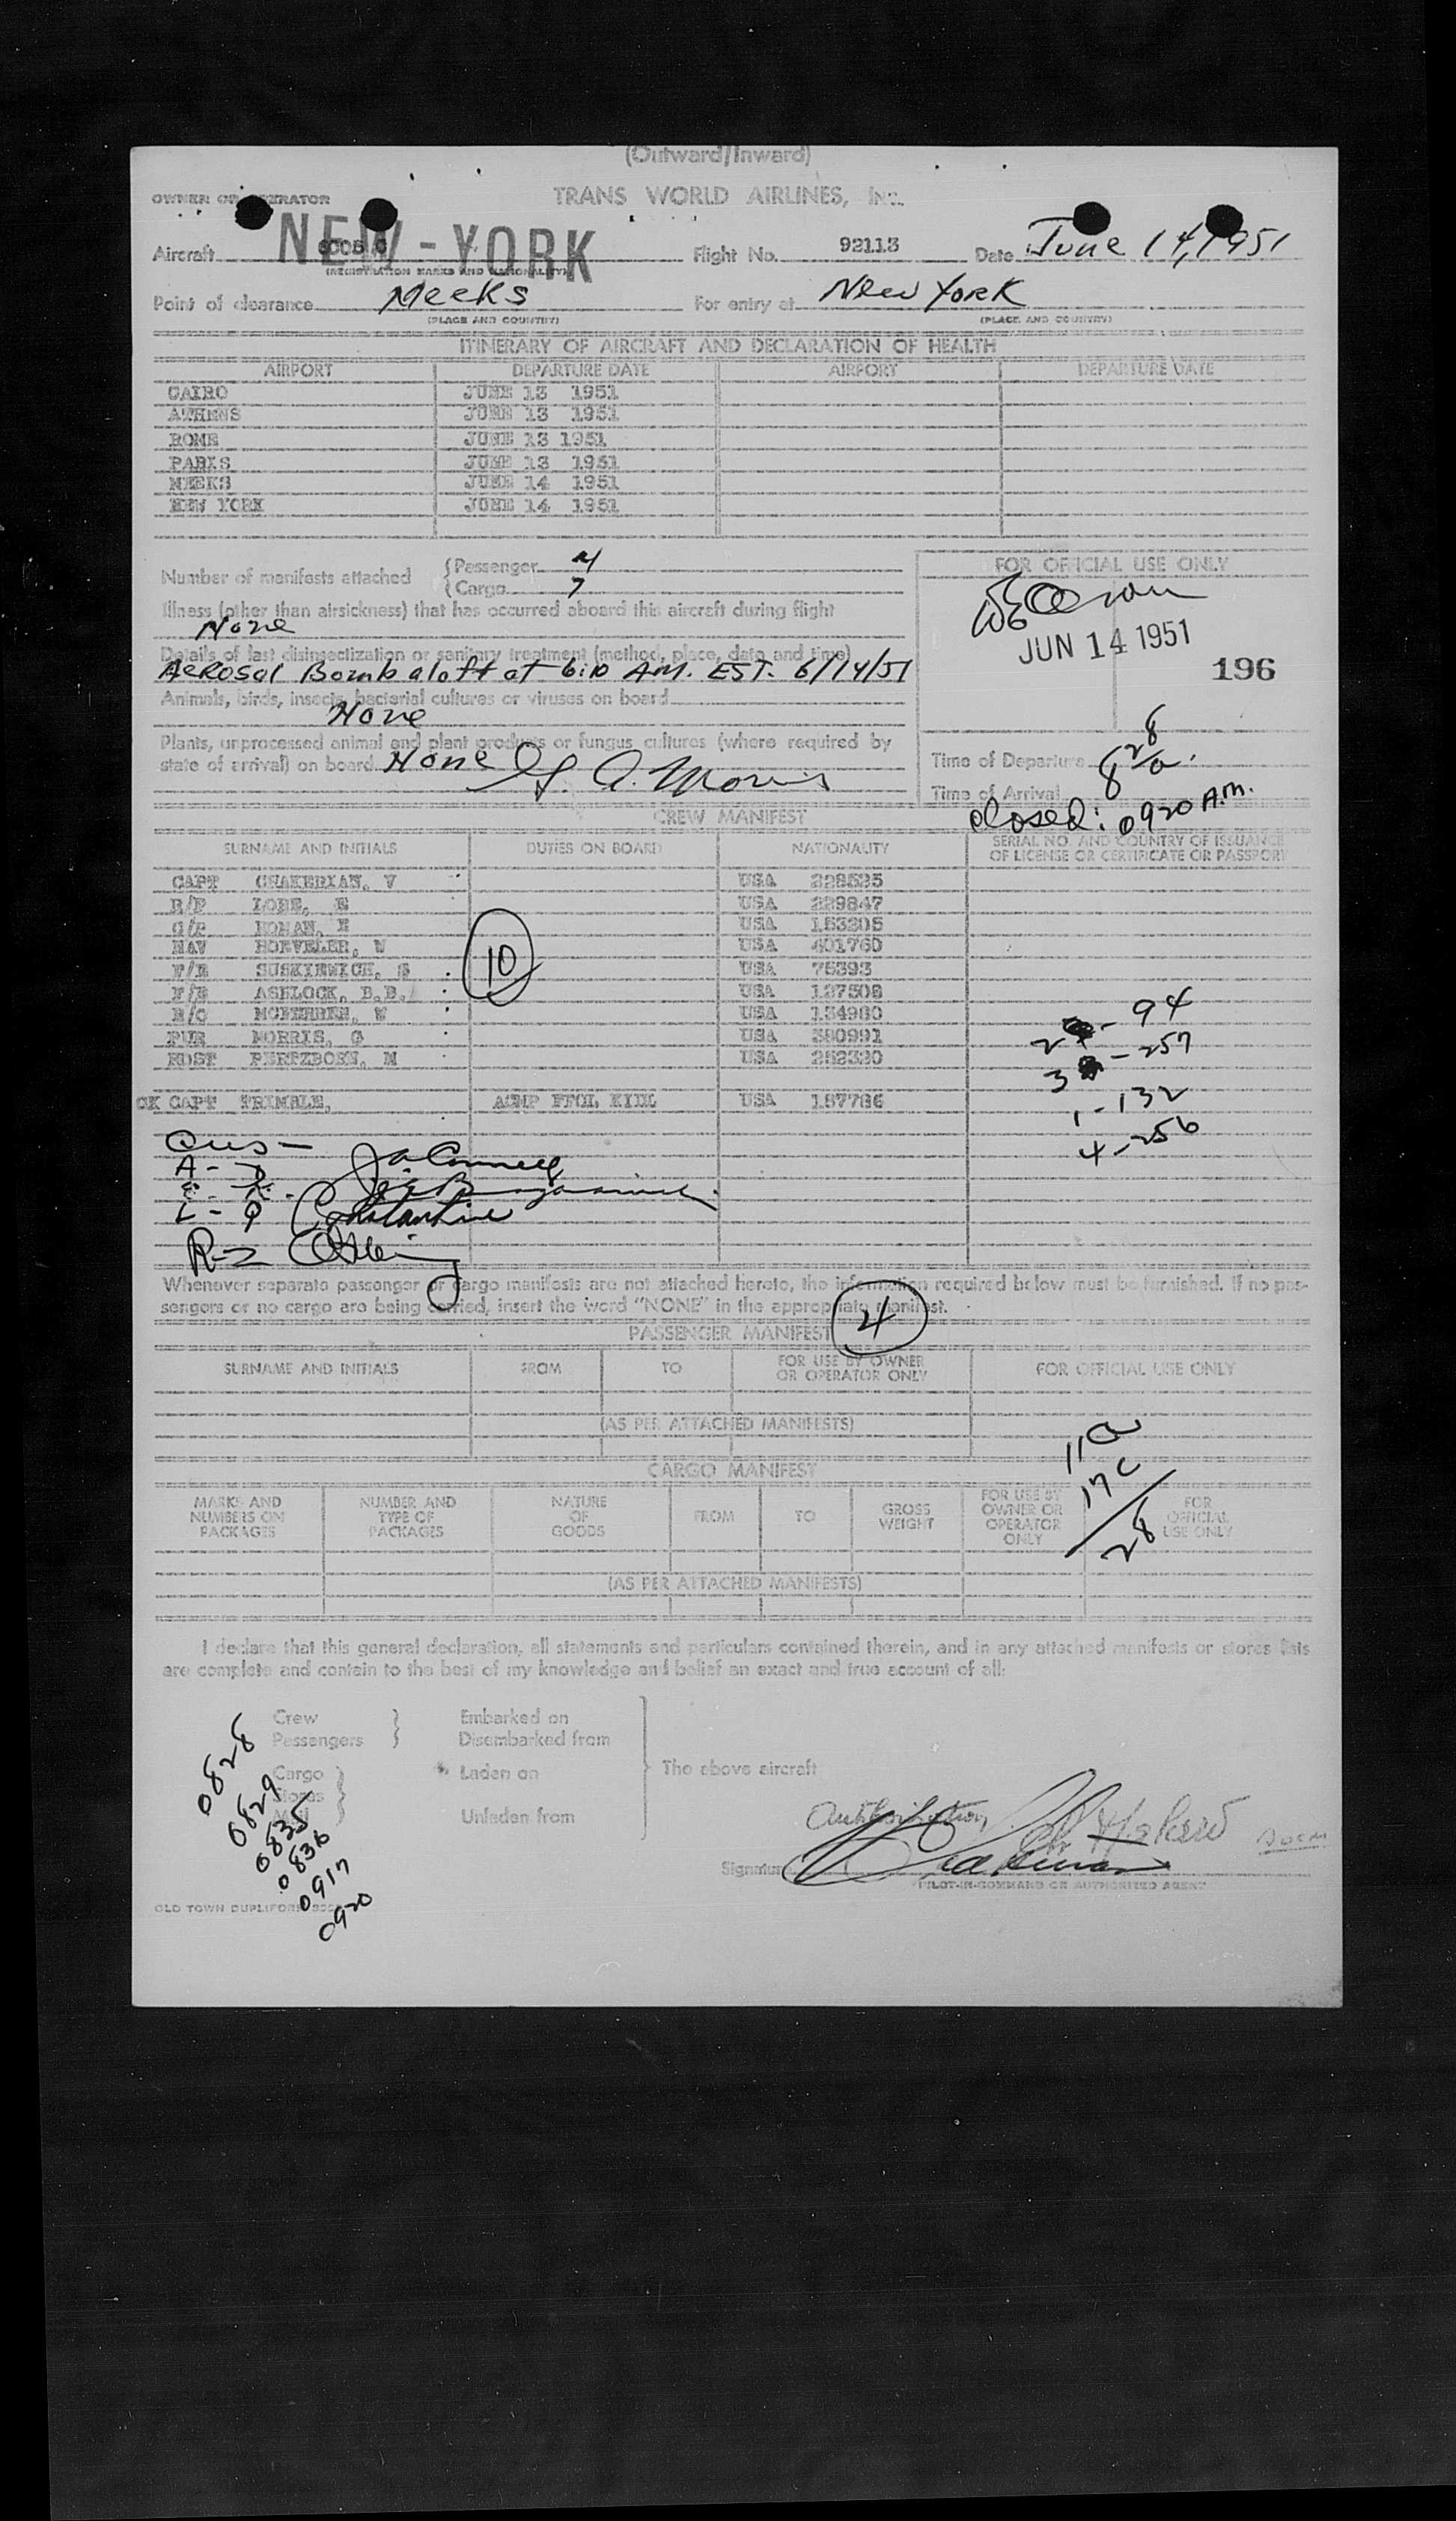 (Outward/Inward)
OWNER OR OPERATOR TRANS WORLD AIRLINES, INC.
NEW-YORK
Aircraft Flight No. 92113 Date June 14, 1951
(REGISTRATION MARKS AND NATIONALITY)
Point of clearance Meeks For entry at New York
(PLACE AND COUNTRY) (PLACE AND COUNTRY)
ITINERARY OF AIRCRAFT AND DECLARATION OF HEALTH
AIRPORT DEPARTURE DATE AIRPORT DEPARTURE DATE
CAIRO JUNE 13 1951
ATHENS JUNE 13 1951
ROME JUNE 13 1951
PARIS JUNE 13 1951
MEEKS JUNE 14 1951
NEW YORK JUNE 14 1951
Number of manifests attached {Passenger 4
{Cargo 7
FOR OFFICIAL USE ONLY
Illness (other than airsickness) that has occurred aboard this aircraft during flight
None
JUN 14 1951
196
Details of last disinsectization or sanitary treatment (method, place, date and time)
Aerosol Bomb aloft at 6:10 A.M. EST. 6/14/51
Animals, birds, insects, bacterial cultures or viruses on board
None
Plants, unprocessed animal and plant products or fungus cultures (where required by
state of arrival) on board None G. A. Morris
Time of Departure 8 28 a.
Time of Arrival
closed: 0920 A.M.
CREW MANIFEST
SURNAME AND INITIALS DUTIES ON BOARD NATIONALITY SERIAL NO. AND COUNTRY OF ISSUANCE
OF LICENSE OR CERTIFICATE OR PASSPORT
CAPT CHAKERIAN, V USA 228535
LOBE, E USA 229847
HOMAN, E USA 153205
NAV HOEVELER, W USA 401760
F/E SUSKIEWICH, S USA 75393
F/E ASHLOCK, B.B. USA 127508
R/O USA 134980
PUR MORRIS, G USA 380991
HOST USA 252320
10
2 - 94
3 - 257
1 - 132
4 - 256
CK CAPT TRIMBLE, USA 157786
Cus -
A - D J.A. Connell
E - K -
L - Q Constantine
R-Z
Whenever separate passenger or cargo manifests are not attached hereto, the information required below must be furnished. If no pas-
sengers or no cargo are being carried, insert the word "NONE" in the appropriate manifest.
PASSENGER MANIFEST 4
SURNAME AND INITIALS FROM TO FOR USE BY OWNER
OR OPERATOR ONLY FOR OFFICIAL USE ONLY
(AS PER ATTACHED MANIFESTS)
11a
17c
28
CARGO MANIFEST
MARKS AND
NUMBERS ON
PACKAGES NUMBER AND
TYPE OF
PACKAGES NATURE
OF
GOODS FROM TO GROSS
WEIGHT FOR USE BY
OWNER OR
OPERATOR
ONLY FOR
OFFICIAL
USE ONLY
(AS PER ATTACHED MANIFESTS)
I declare that this general declaration, all statements and particulars contained therein, and in any attached manifests or stores lists
are complete and contain to the best of my knowledge and belief an exact and true account of all:
Crew
Passengers } Embarked on
Disembarked from
Cargo
Stores
Mail } Laden on
Unladen from
} The above aircraft
0828
0829
0835
0836
0917
0920
Signature
PILOT-IN-COMMAND OR AUTHORIZED AGENT
OLD TOWN DUPLIFORM